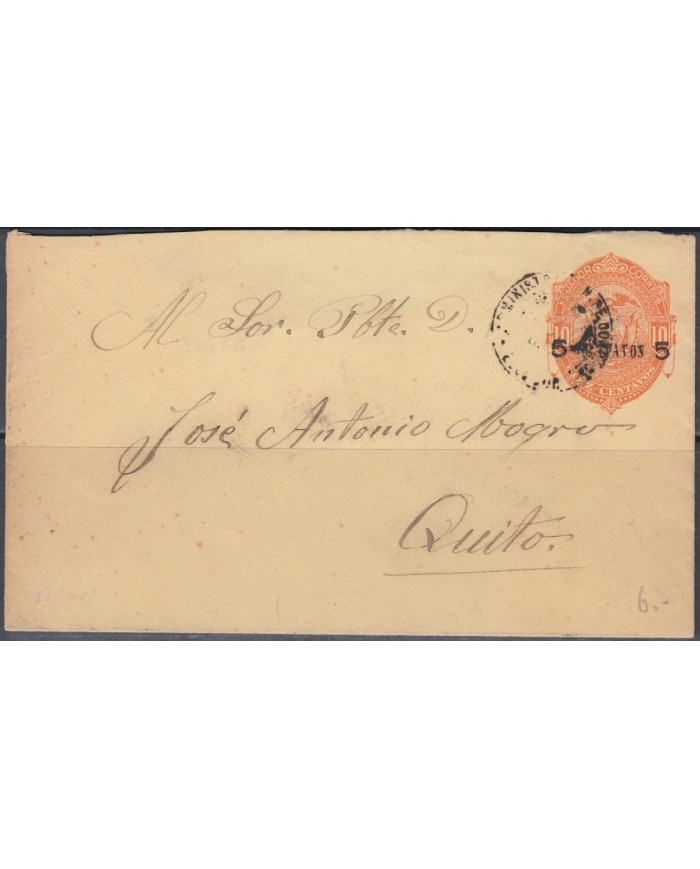 ECUADOR CORREOS
10 10
5 CENTAVOS 5
CENTAVOS
Al Sor. Pbte. D.
José Antonio Mogro
Quito.
6.-